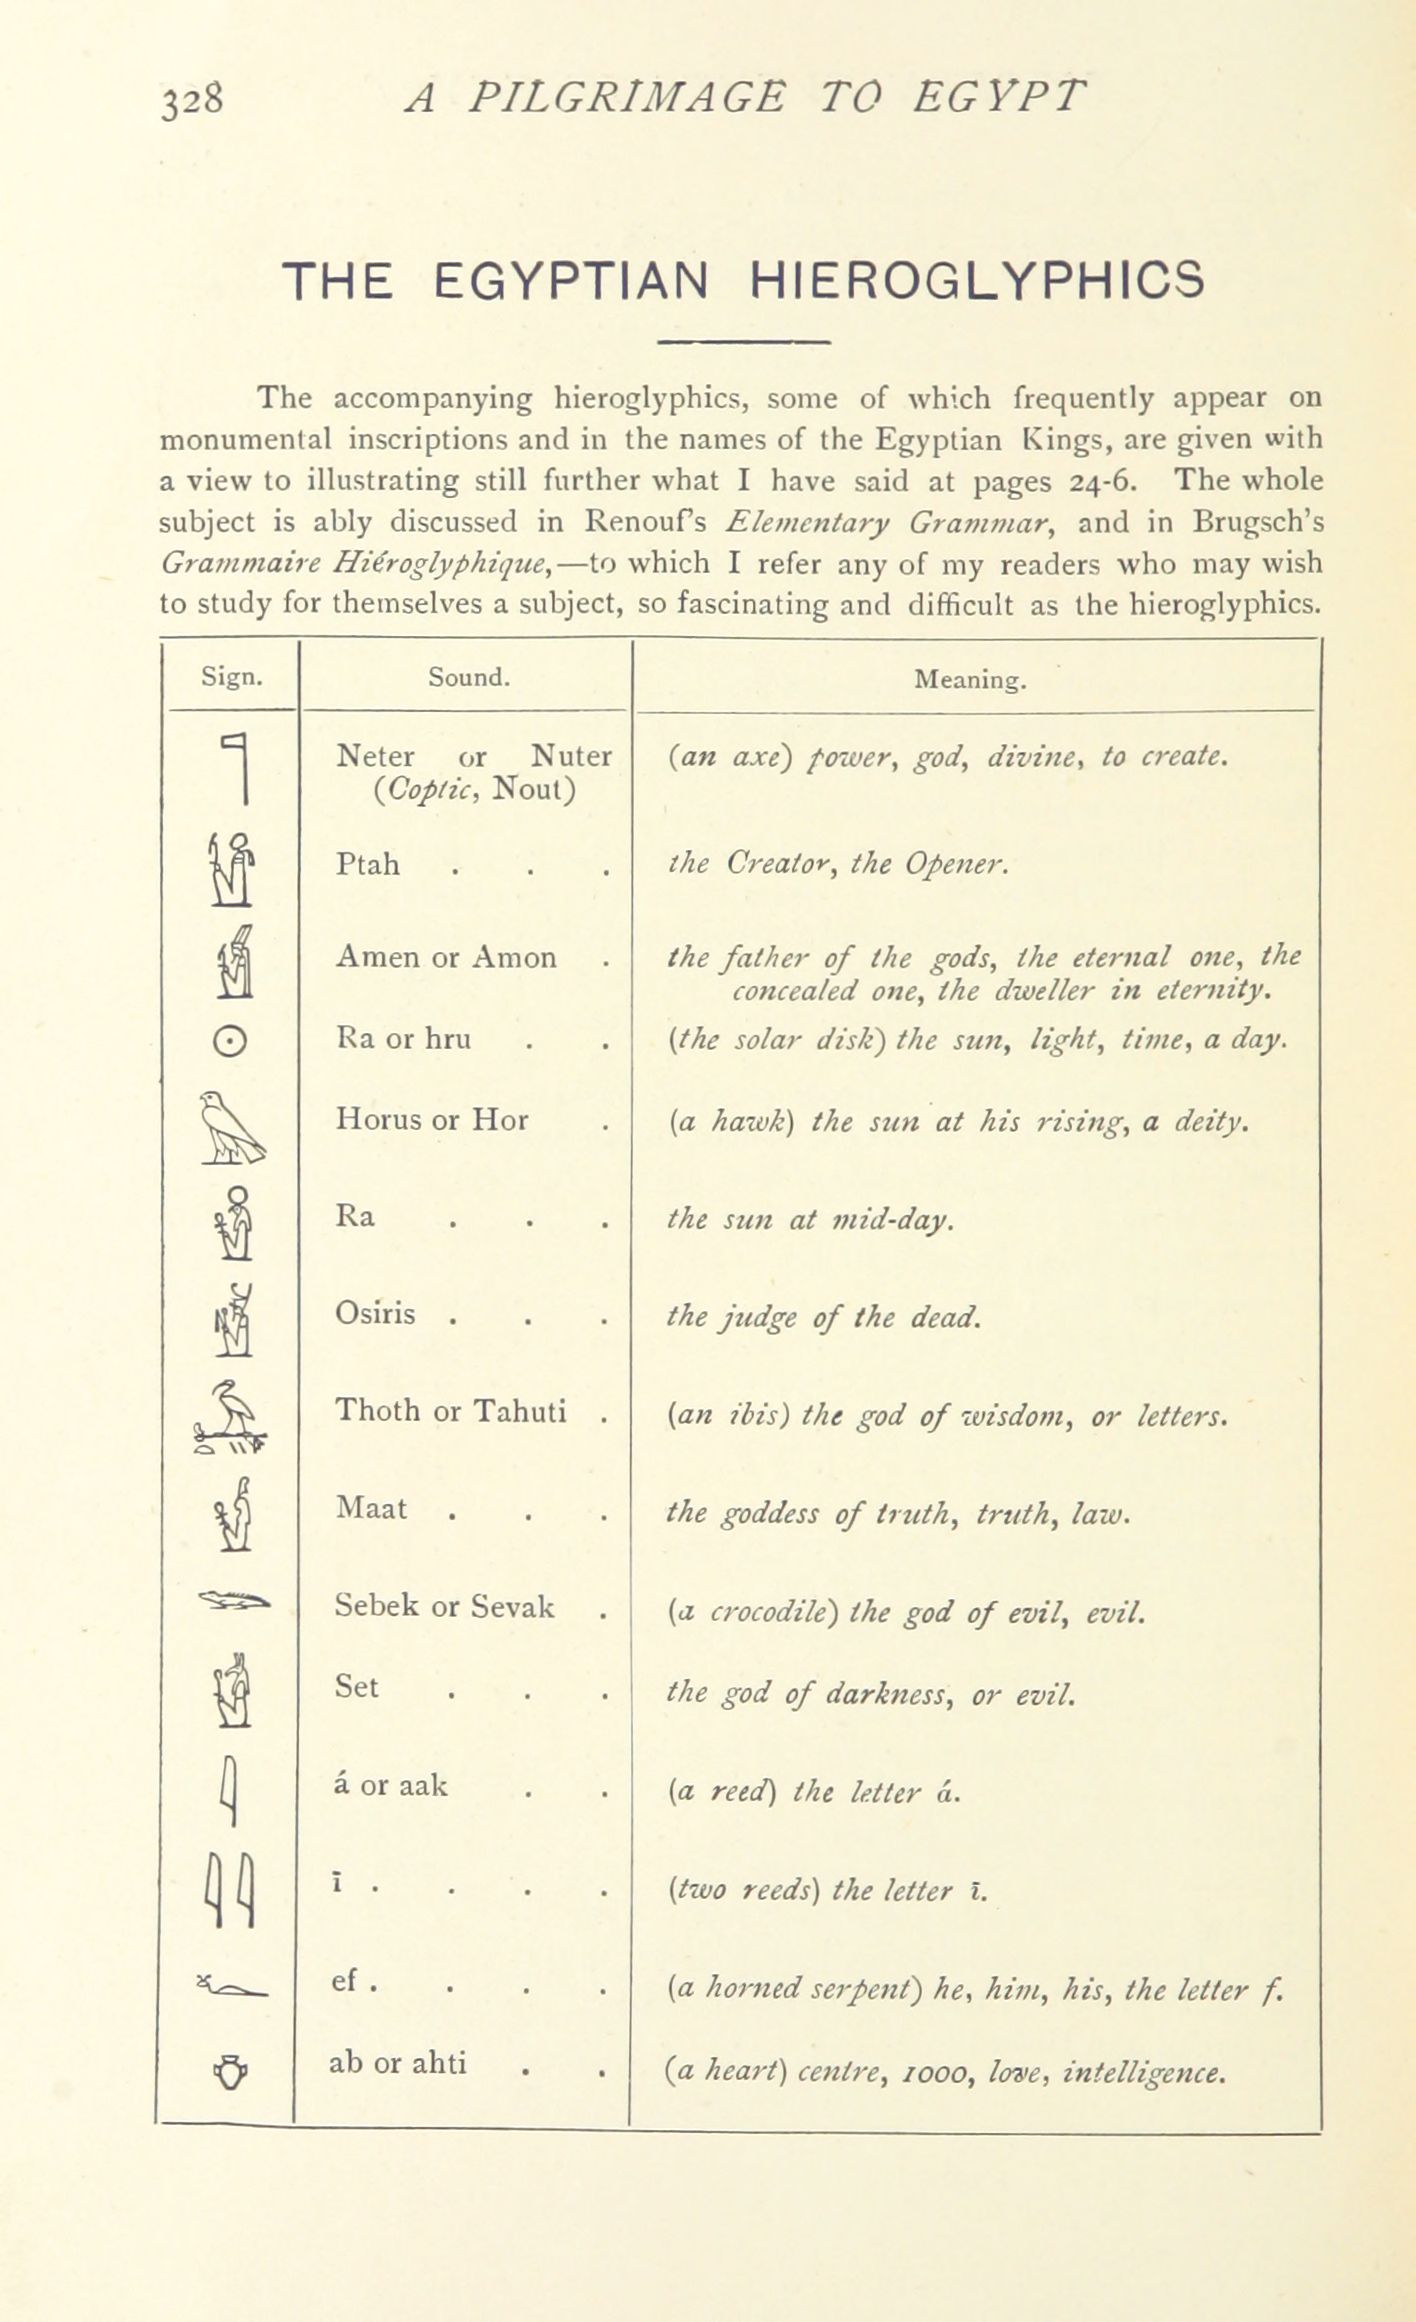 328 A PILGRIMAGE TO EGYPT
THE EGYPTIAN HIEROGLYPHICS
The accompanying hieroglyphics, some of which frequently appear on
monumental inscriptions and in the names of the Egyptian Kings, are given with
a view to illustrating still further what I have said at pages 24-6. The whole
subject is ably discussed in Renouf's Elementary Grammar, and in Brugsch's
Grammaire Hiéroglyphique,—to which I refer any of my readers who may wish
to study for themselves a subject, so fascinating and difficult as the hieroglyphics.
Sign. Sound. Meaning.
Neter or Nuter (an axe) power, god, divine, to create.
(Coptic, Nout)
Ptah . . . the Creator, the Opener.
Amen or Amon . the father of the gods, the eternal one, the
concealed one, the dweller in eternity.
Ra or hru . . (the solar disk) the sun, light, time, a day.
Horus or Hor . (a hawk) the sun at his rising, a deity.
Ra . . . the sun at mid-day.
Osiris . . . the judge of the dead.
Thoth or Tahuti . (an ibis) the god of wisdom, or letters.
Maat . . . the goddess of truth, truth, law.
Sebek or Sevak . (a crocodile) the god of evil, evil.
Set . . . the god of darkness, or evil.
á or aak . . (a reed) the letter á.
ī . . . . (two reeds) the letter ī.
ef . . . . (a horned serpent) he, him, his, the letter f.
ab or ahti . . (a heart) centre, 1000, love, intelligence.